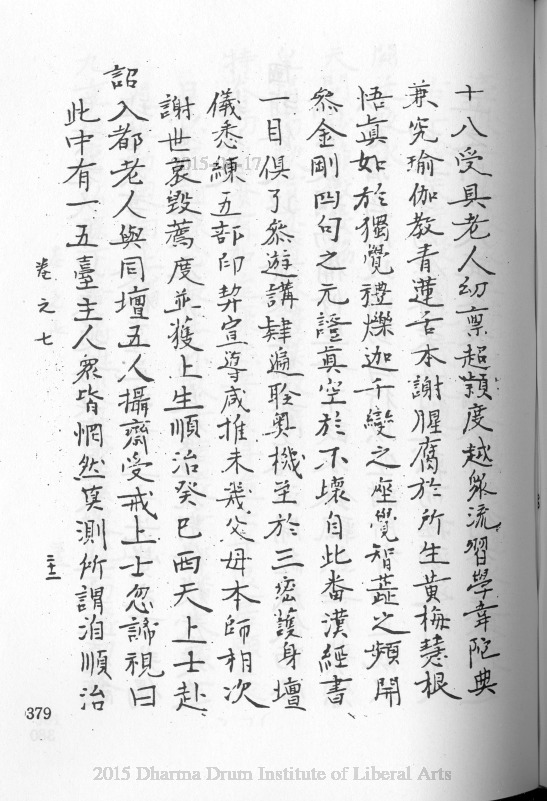 十八受具老人幼稟超穎度越衆流習學韋陀典
兼究瑜伽教青蓮舌本謝腥腐於所生黃梅慧根
悟眞如於獨覺禮爍迦千變之座覺智蕋之頻開
叅金剛四句之元證眞空於不壞自此畨漢經書
一目俱了叅遊講肆遍聆奥機至於三密護身壇
儀悉練五部印契宣導咸推未幾父母本師相次
謝世哀毀薦度並獲上生順治癸巳西天上士赴
詔入都老人與同壇五人攝齋受戒上士忽諦視曰
此中有一五臺主人衆皆惘然莫測所謂洎順治
卷之七
三十二
379
2015 Dharma Drum Institute of Liberal Arts